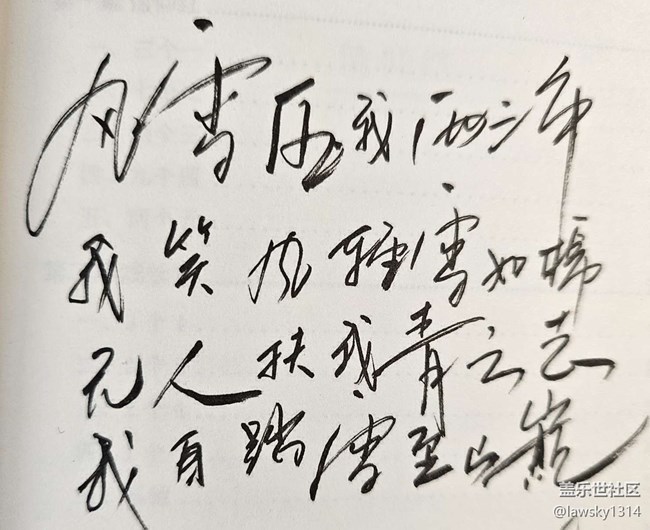 风雪压我两三年
我笑风轻雪如棉
无人扶我青云志
我自踏雪至山巅
盖乐世社区
@lawsky1314